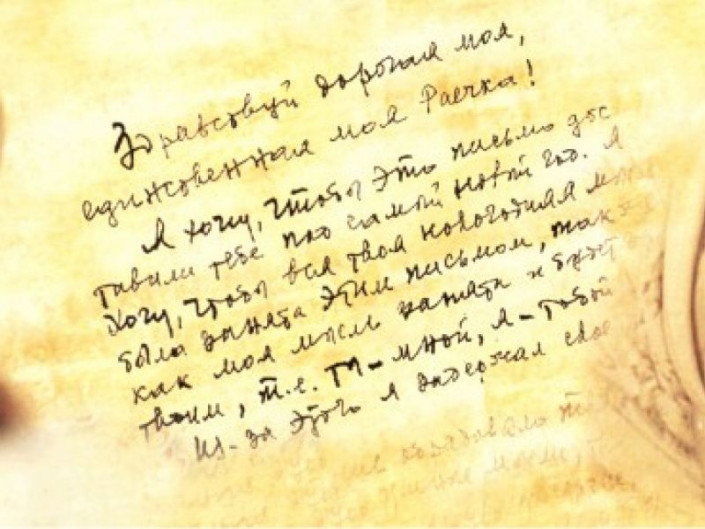 Здравствуй дорогая моя,
единственная моя Раечка!
Я хочу, чтобы это письмо дос
тавили тебе под самый новый год. Я
хочу, чтобы вся твоя новогодняя
была занята этим письмом, так
как моя мысль занята и будет
твоим, т.е. ты - мной, я - тобой
Из-за этого я задержал свое
обрадовало